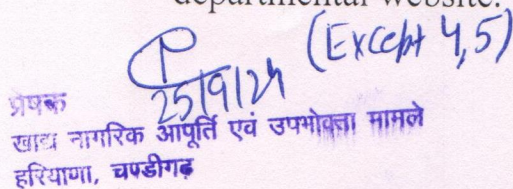 departmental website.
(Except 4,5)
25/9/24
प्रेषक
खाद्य नागरिक आपूर्ति एवं उपभोक्ता मामले
हरियाणा, चण्डीगढ़